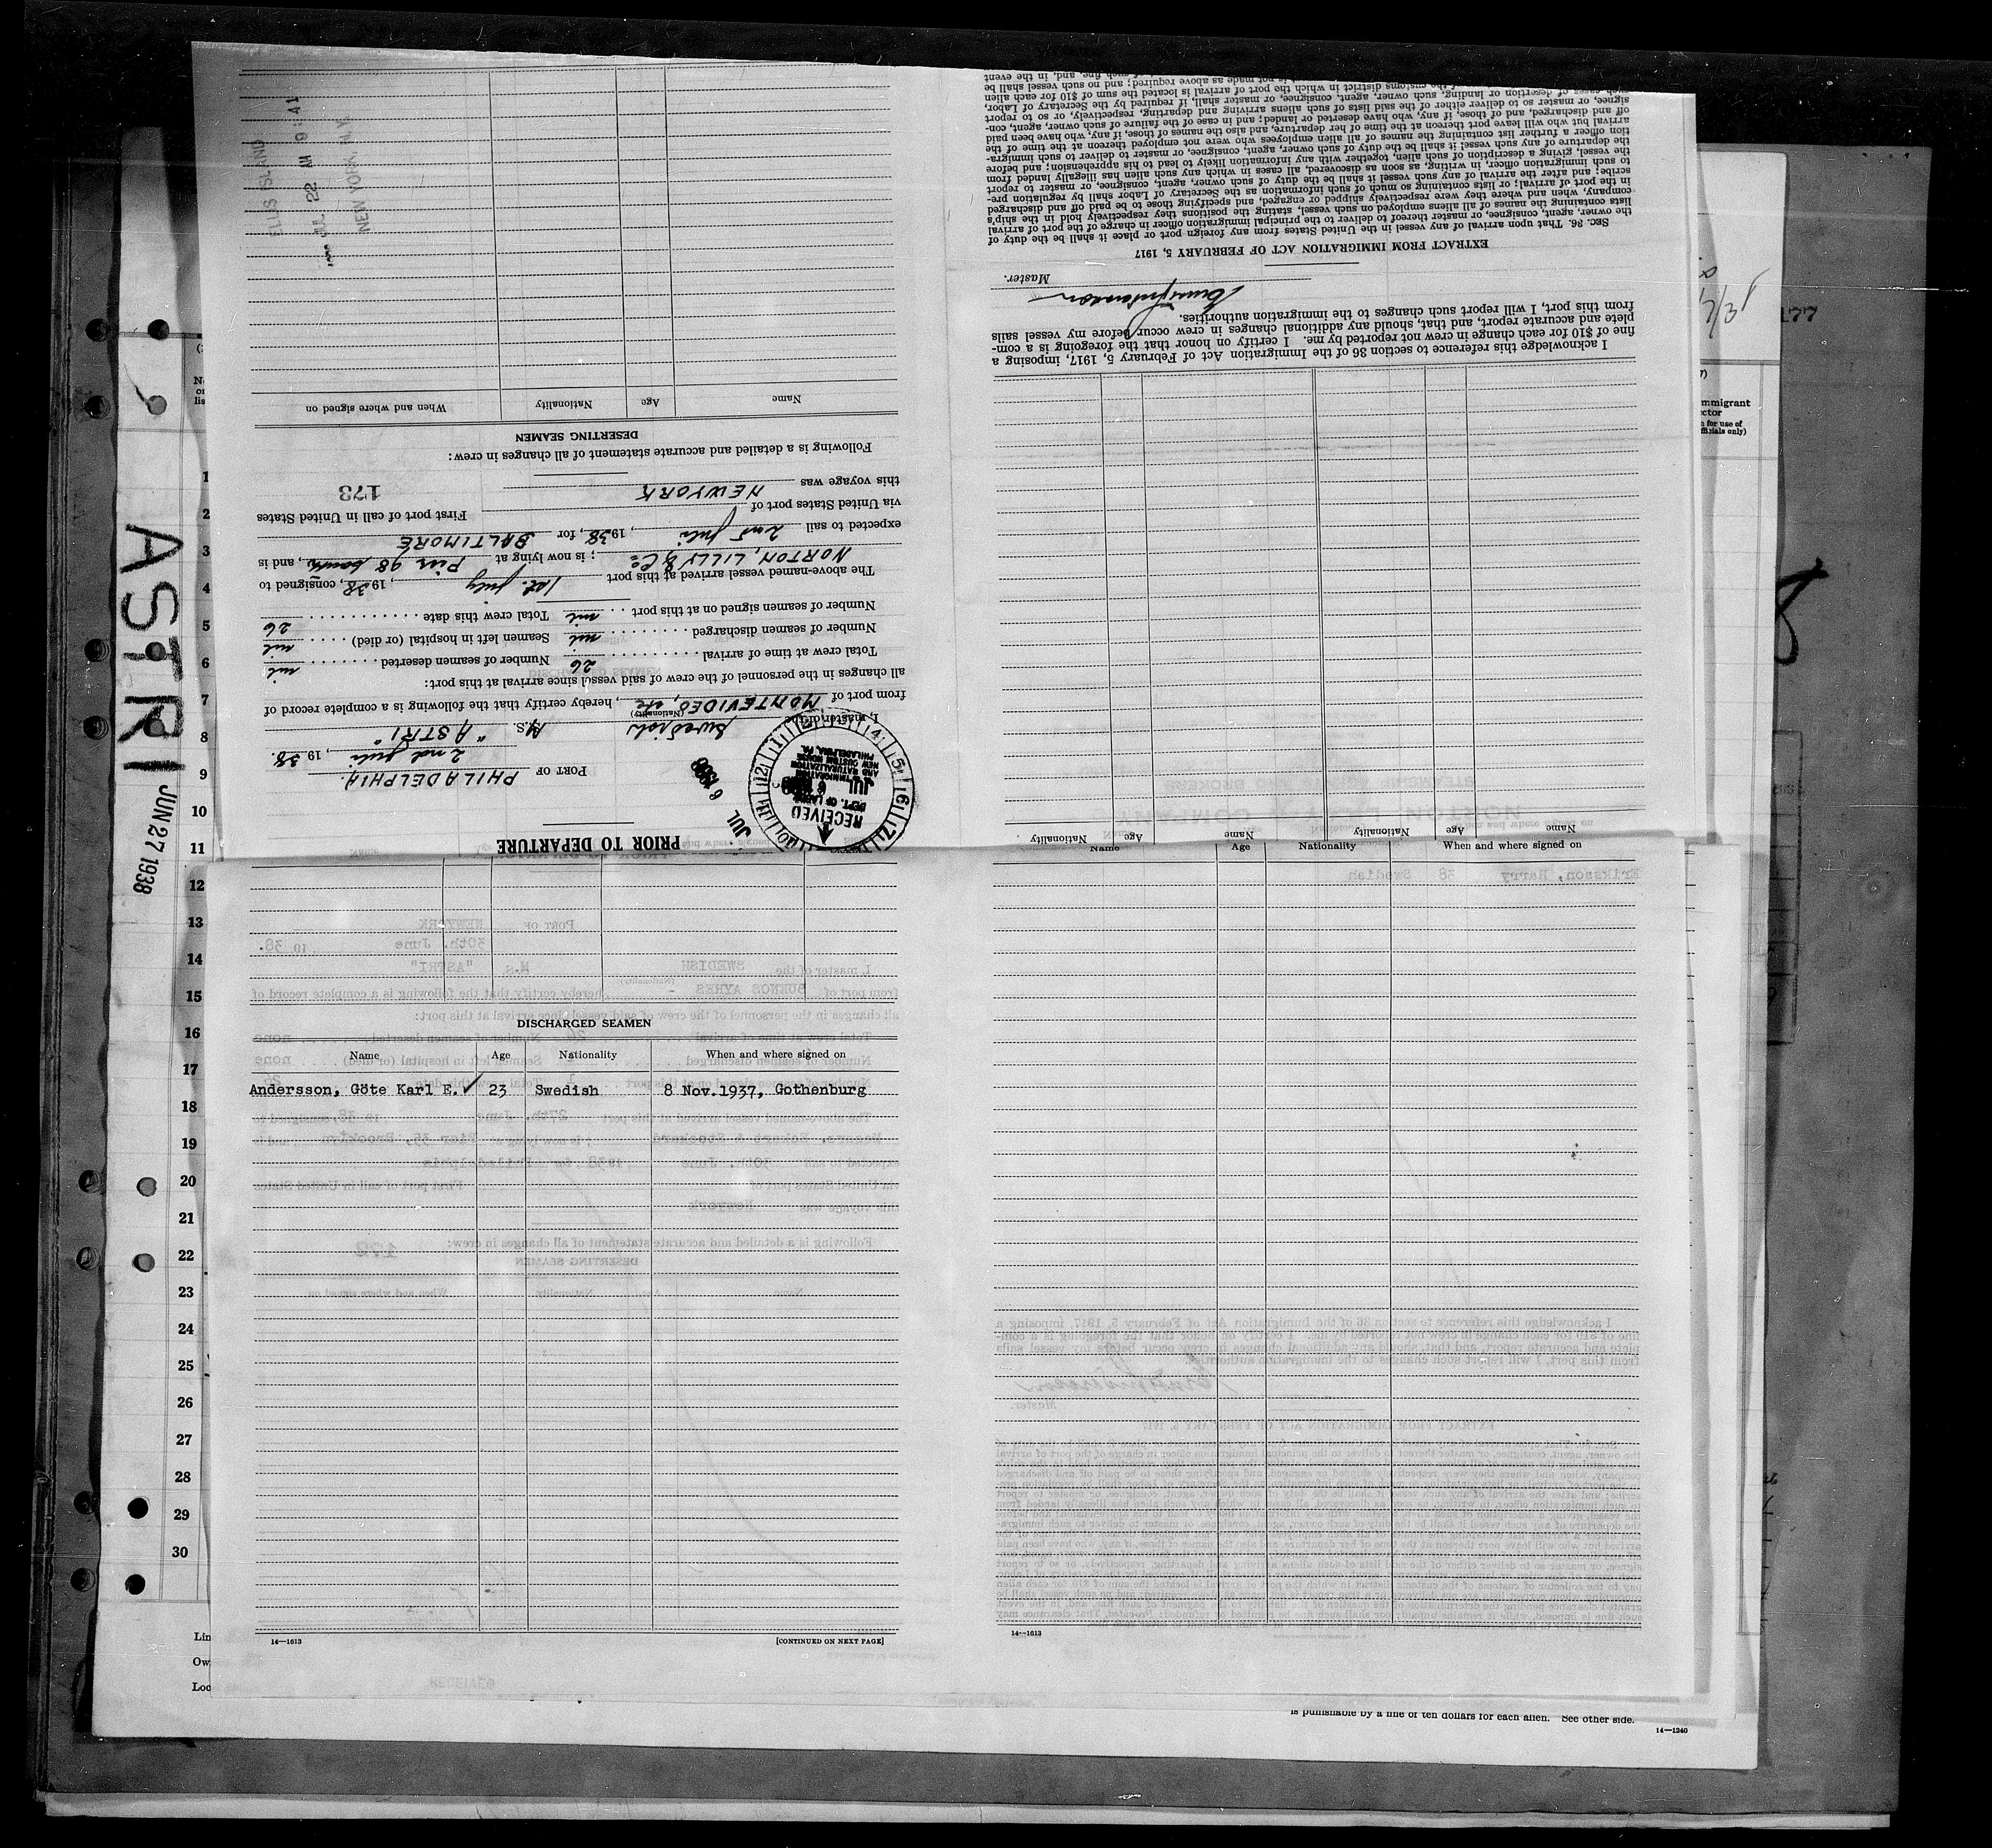 ASTRI
JUN 27 1938
177
1
2
3
4
5
6
7
8
9
10
11
12
13
14
15
16
17
18
19
20
21
22
23
24
25
26
27
28
29
30
PRIOR TO DEPARTURE
PORT OF PHILADELPHIA
2nd juli, 1938.
I, master of the Swedish M.S. "ASTRI"
(Nationality)
from port of MONTEVIDEO, etc, hereby certify that the following is a complete record of
all changes in the personnel of the crew of said vessel since arrival at this port:
Total crew at time of arrival 26 Number of seamen deserted nil
Number of seamen discharged nil Seamen left in hospital (or died) nil
Number of seamen signed on at this port nil Total crew this date 26
The above-named vessel arrived at this port 1st. july, 1938, consigned to
NORTON, LILLY & Co; is now lying at Pier 98 South, and is
expected to sail 2nd juli, 1938, for BALTIMORE
via United States port of First port of call in United States
this voyage was NEWYORK
173
Following is a detailed and accurate statement of all changes in crew:
DESERTING SEAMEN
Name Age Nationality When and where signed on
RECEIVED
DEPT. OF LABOR
JUL 6 1938
IMMIGRATION
AND NATURALIZATION
NEW CUSTOM HOUSE
PHILADELPHIA, PA.
JUL 6 1938
ELLIS ISLAND
JUL 22 AM 9 41
NEW YORK, N.Y.
Name Age Nationality Name Age Nationality
I acknowledge this reference to section 36 of the Immigration Act of February 5, 1917, imposing a
fine of $10 for each change in crew not reported by me. I certify on honor that the foregoing is a com-
plete and accurate report, and that, should any additional changes in crew occur before my vessel sails
from this port, I will report such changes to the immigration authorities.
Master.
EXTRACT FROM IMMIGRATION ACT OF FEBRUARY 5, 1917
SEC. 36. That upon arrival of any vessel in the United States from any foreign port or place it shall be the duty of
the owner, agent, consignee, or master thereof to deliver to the principal immigration officer in charge of the port of arrival
lists containing the names of all aliens employed on such vessel, stating the positions they respectively hold in the ship's
company, when and where they were respectively shipped or engaged, and specifying those to be paid off and discharged
in the port of arrival; or lists containing so much of such information as the Secretary of Labor shall by regulation pre-
scribe; and after the arrival of any such vessel it shall be the duty of such owner, agent, consignee, or master to report
to such immigration officer, in writing, as soon as discovered, all cases in which any such alien has illegally landed from
the vessel, giving a description of such alien, together with any information likely to lead to his apprehension; and before
the departure of any such vessel it shall be the duty of such owner, agent, consignee, or master to deliver to such immigra-
tion officer a further list containing the names of all alien employees who were not employed thereon at the time of the
arrival but who will leave port thereon at the time of her departure, and also the names of those, if any, who have been paid
off and discharged, and of those, if any, who have deserted or landed; and in case of the failure of such owner, agent, con-
signee, or master so to deliver either of the said lists of such aliens arriving and departing, respectively, or so to report
such cases of desertion or landing, such owner, agent, consignee, or master shall, if required by the Secretary of Labor,
of the customs district in which the port of arrival is located the sum of $10 for each alien
is not made as above required; and no such vessel shall be
such fine, and, in the event
DISCHARGED SEAMEN
Name Age Nationality When and where signed on
Andersson, Göte Karl E. 23 Swedish 8 Nov.1937, Gothenburg
14—1613
[CONTINUED ON NEXT PAGE]
Name Age Nationality When and where signed on
14—1613
is punishable by a fine of ten dollars for each alien. See other side.
14—1240